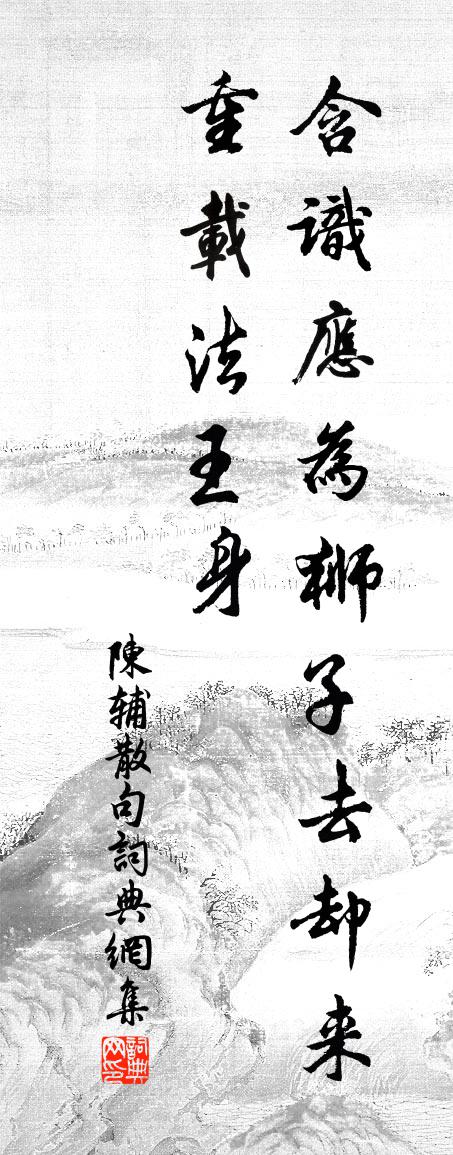 含識應為獅子去却来
重載法王身
陳辅散句詞典網集
詞典网印